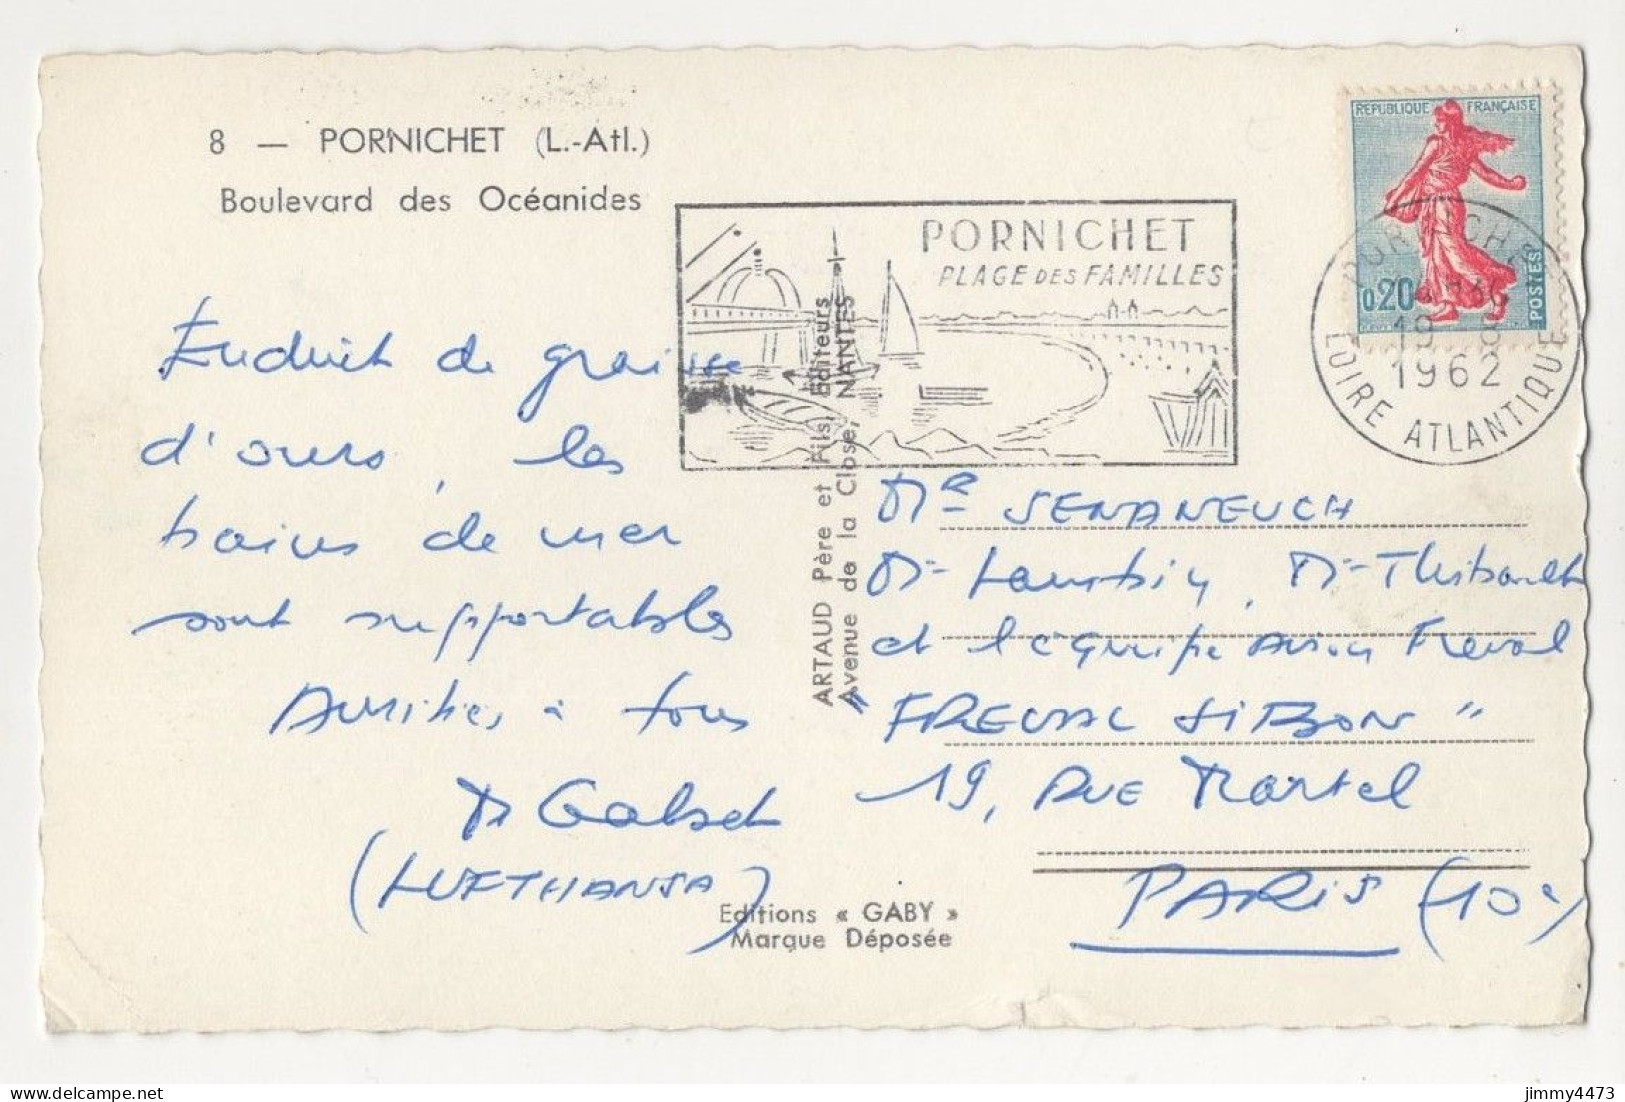 8 — PORNICHET (L.-Atl.)
Boulevard des Océanides
PORNICHET
PLAGE DES FAMILLES
REPUBLIQUE FRANÇAISE
0,20
POSTES
PORNICHET
19 - 8
1962
LOIRE ATLANTIQUE
Enduit de graisse
d'ours, les
bains de mer
sont supportables
Amitiés à tous
Dr
(LUFTHANSA)
ARTAUD Père et Fils, Editeurs
Avenue de la Close, NANTES
Mr SENANEUCH
Mr Mr Thibault
et l'équipe Freval
"FREVAL
19, RUE Martel
PARIS (10e)
Editions « GABY »
Marque Déposée
jimmy4473